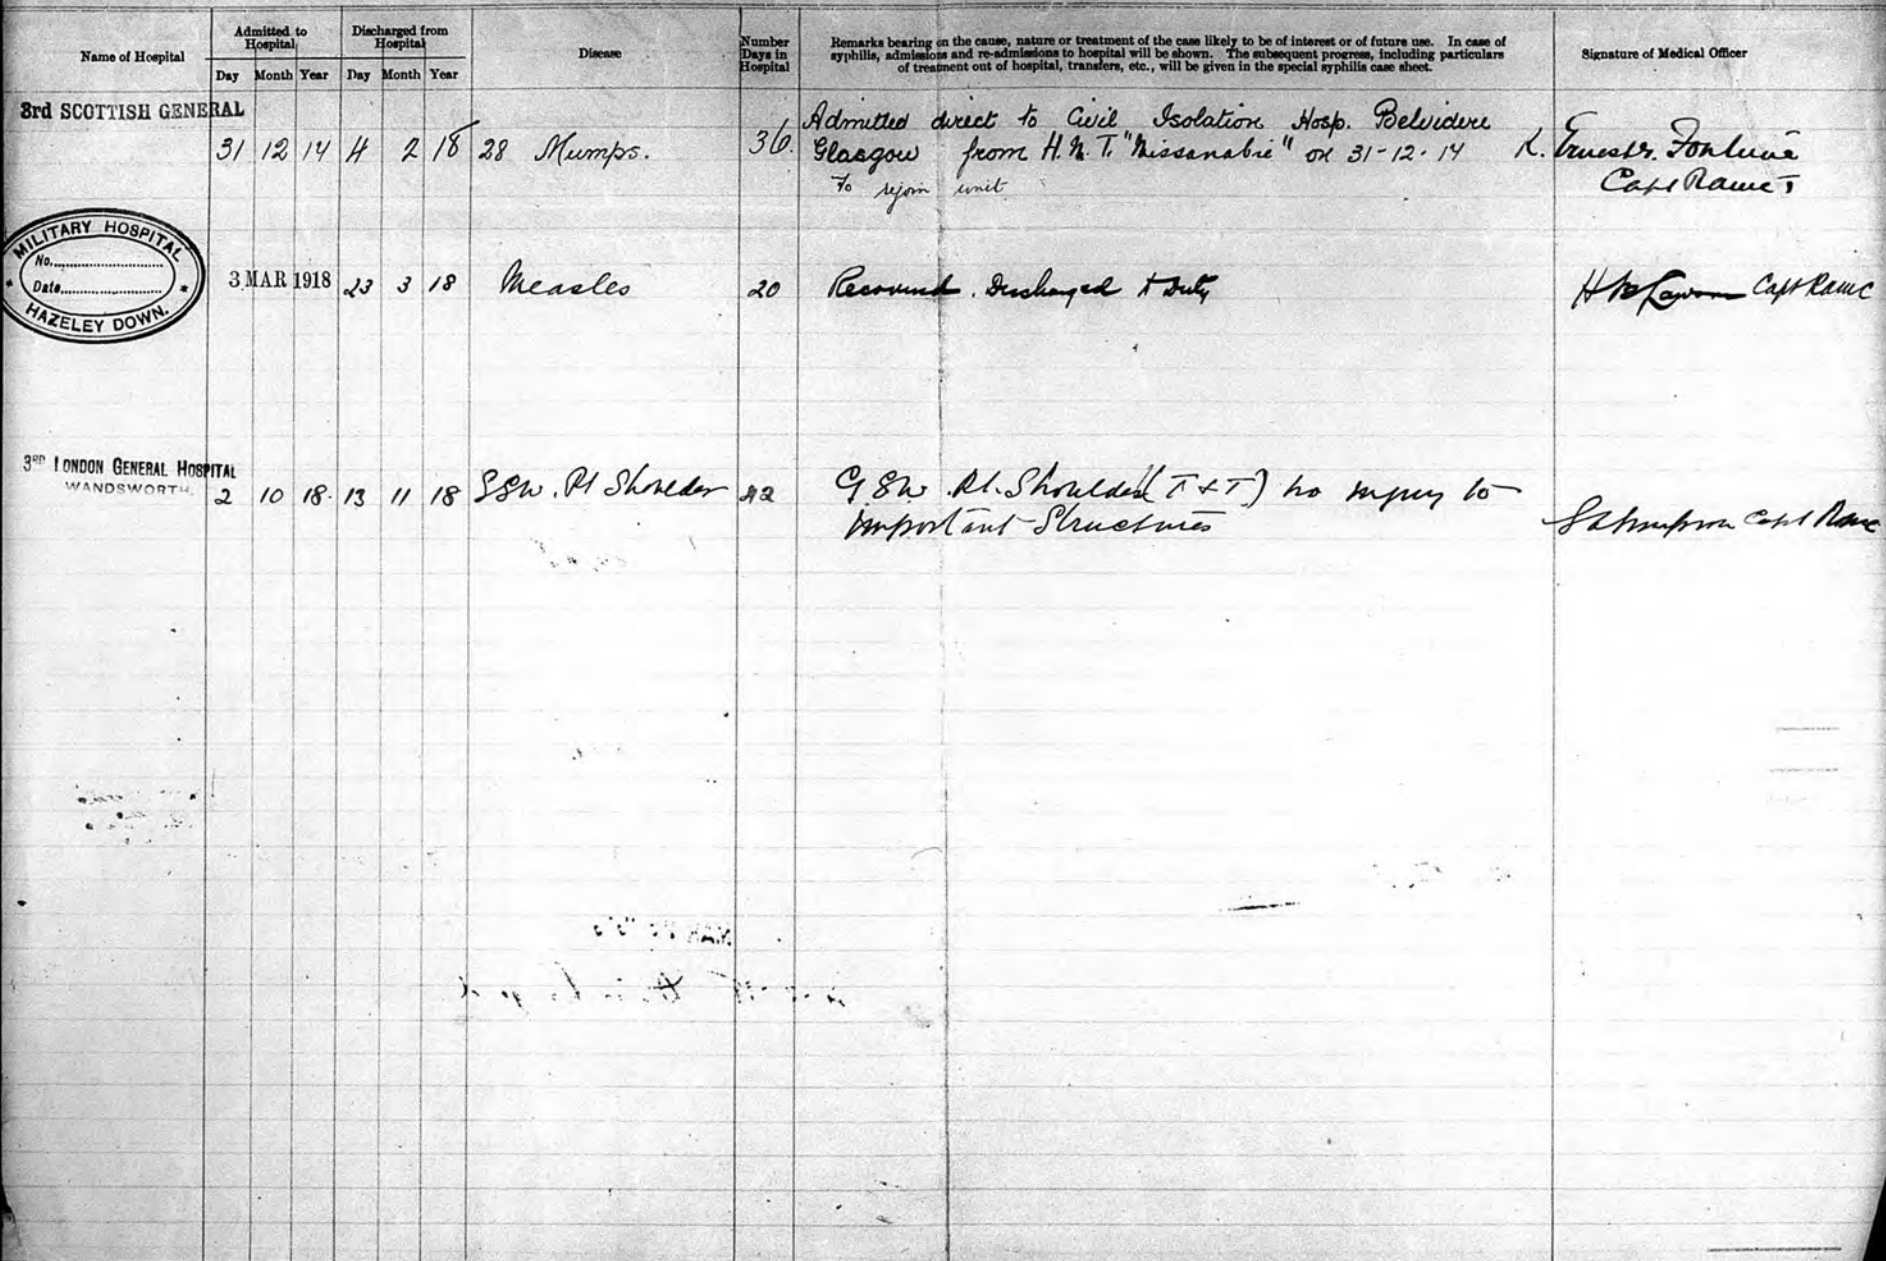 Name of Hospital
Admitted to Hospital
Discharged from Hospital
Disease
Number Days in Hospital
Remarks bearing on the cause, nature or treatment of the case likely to be of interest or of future use. In case of
syphilis, admissions and re-admissions to hospital will be shown. The subsequent progress, including particulars
of treatment out of hospital, transfers, etc., will be given in the special syphilis case sheet.
Signature of Medical Officer
Day Month Year Day Month Year
3rd SCOTTISH GENERAL
Admitted direct to Civil Isolation Hosp. Belvidere
31 12 17 4 2 18 28 Mumps. 36. Glasgow from H.M.T. "Missanabie" on 31-12-17 K. Ernest Fortune
To rejoin unit
Capt RAMC T
MILITARY HOSPITAL
No.
Date
HAZELEY DOWN.
3 MAR 1918 23 3 18 Measles 20 Recovered. Discharged to Duty Capt RAMC
3RD LONDON GENERAL HOSPITAL
WANDSWORTH.
2 10 18. 13 11 18 GSW. Rt Shoulder 42 GSW. Rt. Shoulder (T & T) no injury to
important Structures
Capt RAMC